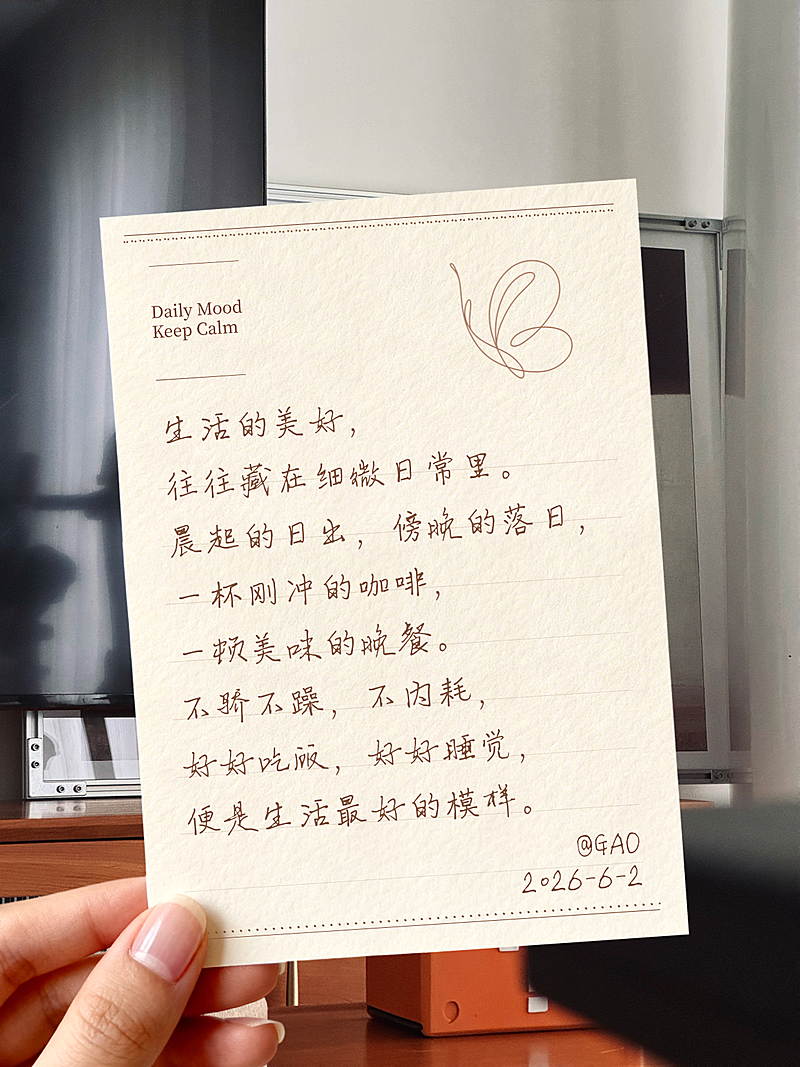 Daily Mood
Keep Calm
生活的美好，
往往藏在细微日常里。
晨起的日出，傍晚的落日，
一杯刚冲的咖啡，
一顿美味的晚餐。
不骄不躁，不内耗，
好好吃饭，好好睡觉，
便是生活最好的模样。
@GAO
2026-6-2